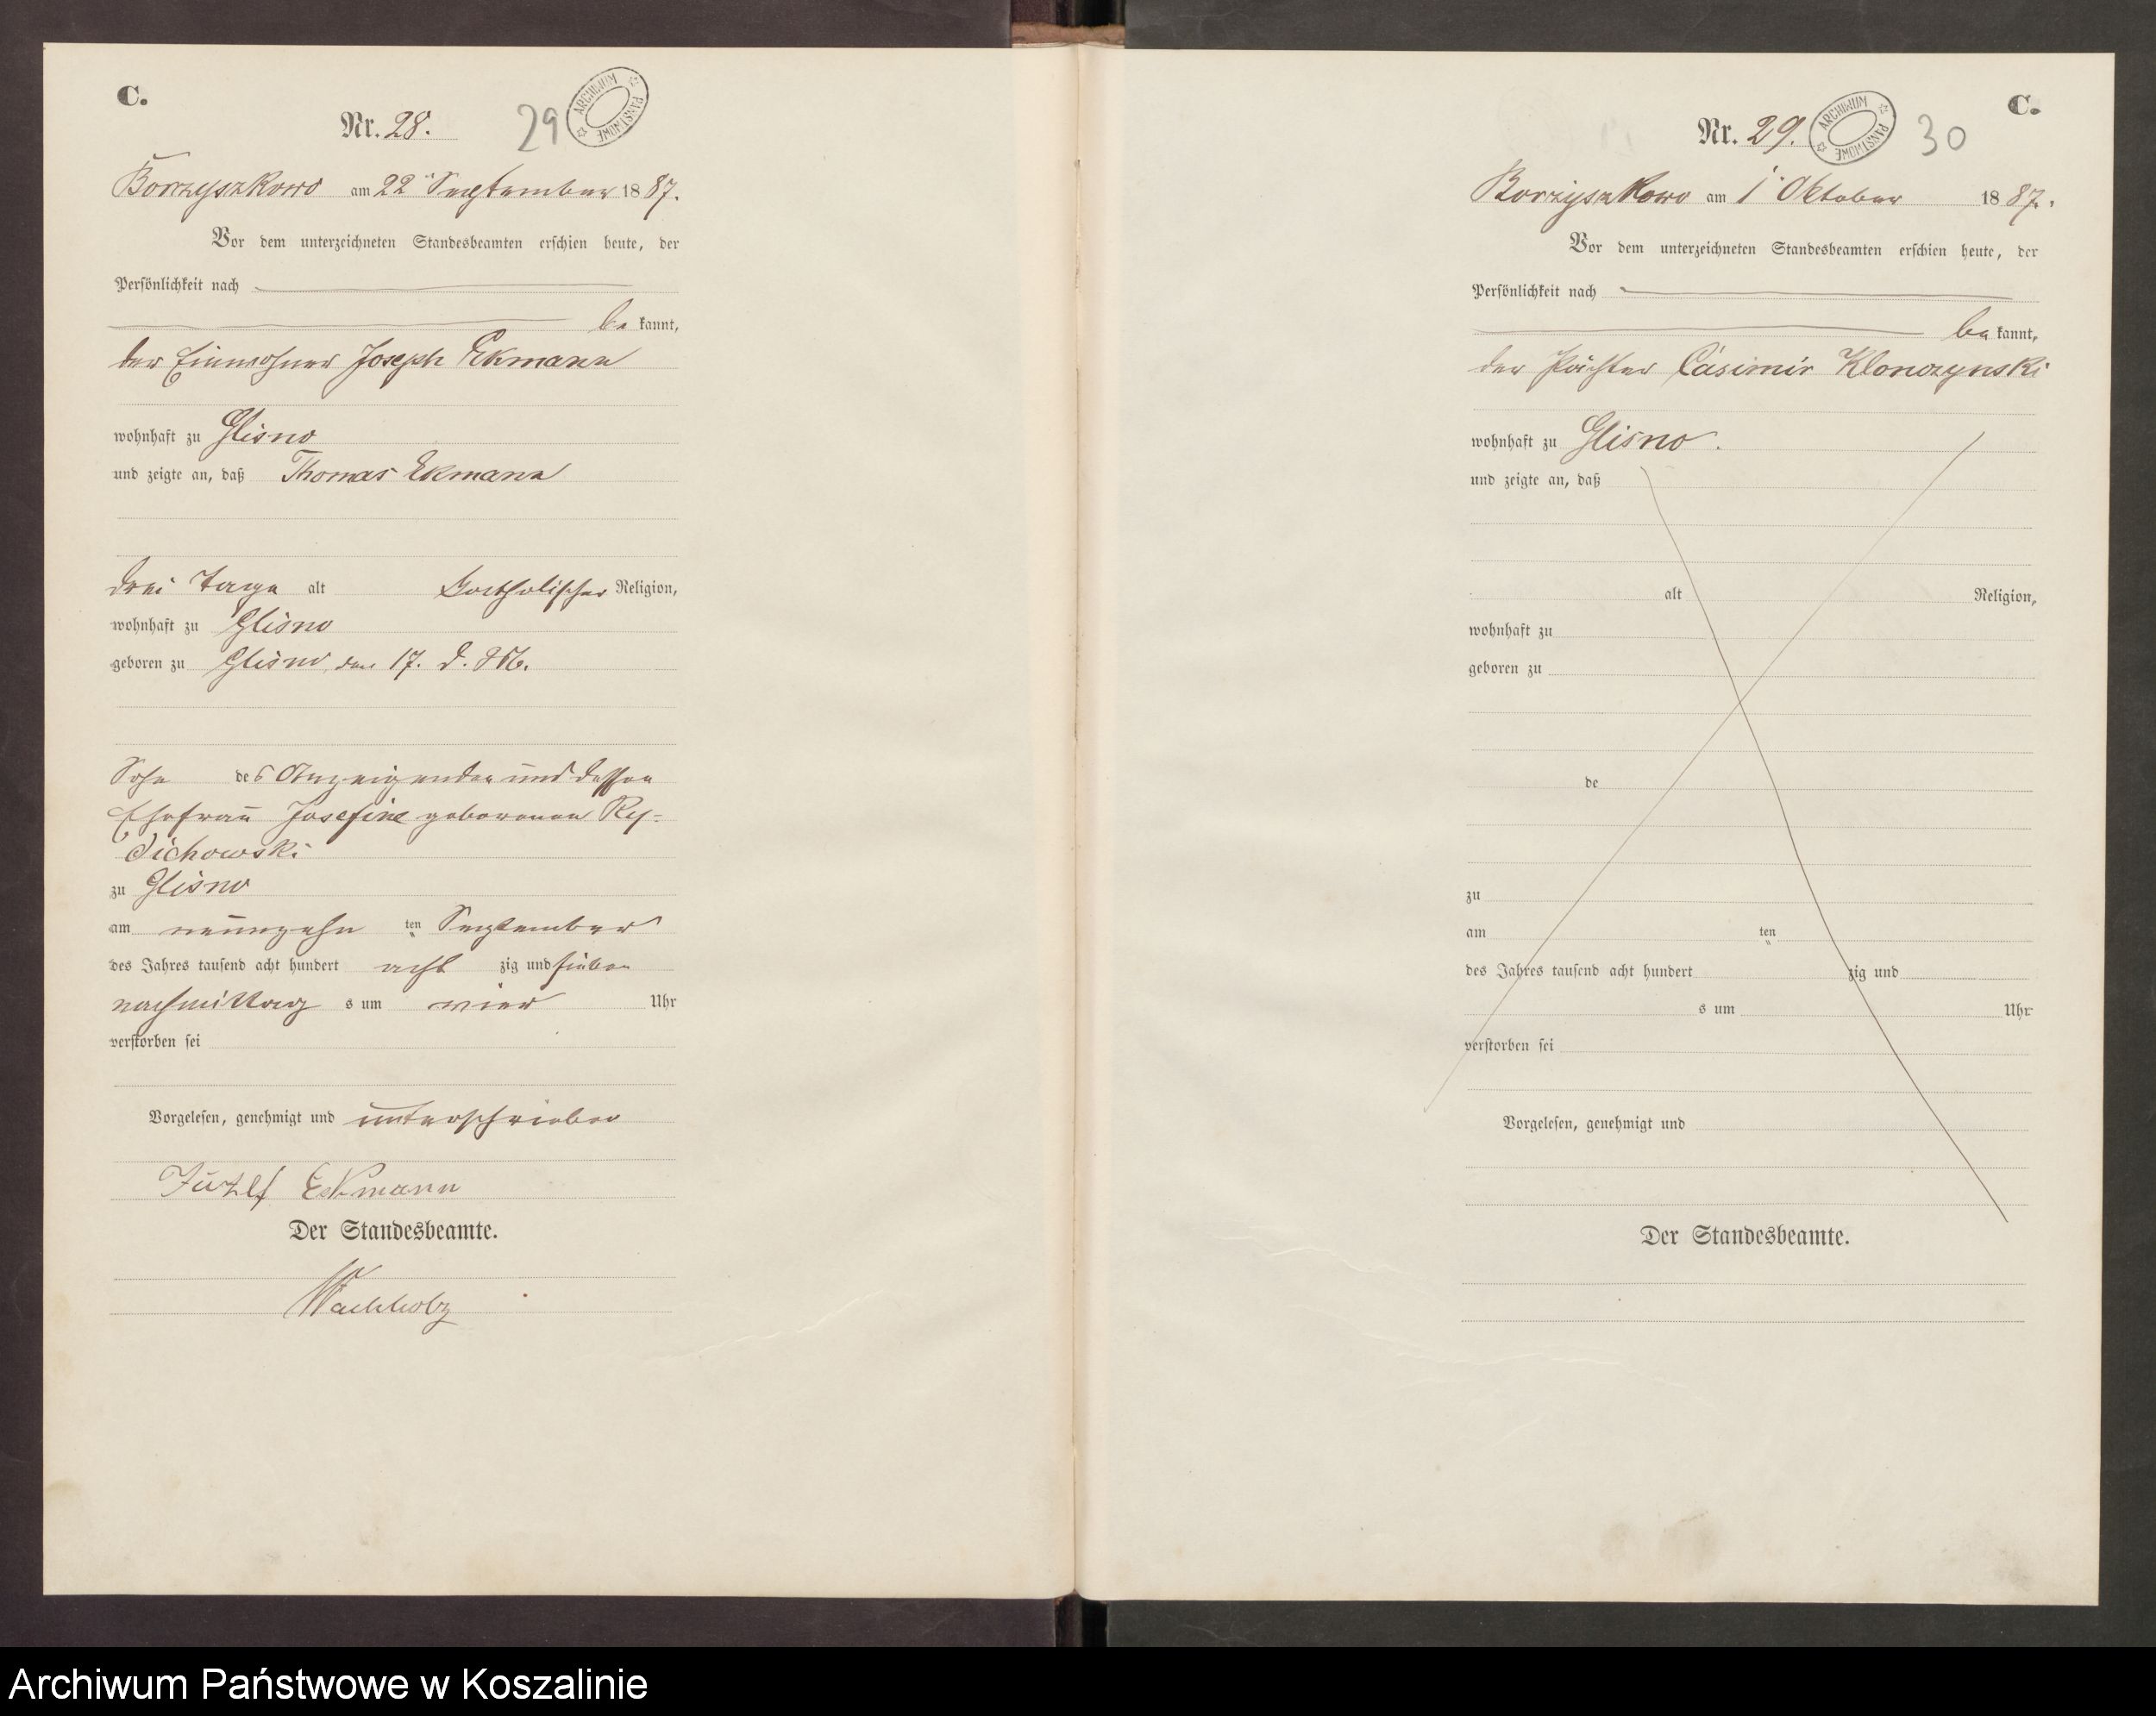 C.
Nr. 28.
29
ARCHIWUM PAŃSTWOWE
Borzyszkowo am 22 September 1887.
Vor dem unterzeichneten Standesbeamten erschien heute, der
Persönlichkeit nach
bekannt,
der Einwohner Joseph Ekmann
wohnhaft zu Glisno
und zeigte an, daß Thomas Ekmann
drei Tage alt katholischer Religion,
wohnhaft zu Glisno
geboren zu Glisno, den 17. d. Mts.
Sohn des Anzeigenden und dessen
Ehefrau Josefine geborenen Ry-
dichowski
zu Glisno
am neunzehnten September
des Jahres tausend acht hundert achtzig und sieben
nachmittags um vier Uhr
verstorben sei
Vorgelesen, genehmigt und unterschrieben
Ekmann
Der Standesbeamte.
Wachholz
C.
Nr. 29.
ARCHIWUM PAŃSTWOWE
30
Borzyszkowo am 1 Oktober 1887.
Vor dem unterzeichneten Standesbeamten erschien heute, der
Persönlichkeit nach
bekannt,
der Pächter Casimir Klonczynski
wohnhaft zu Glisno.
und zeigte an, daß
alt Religion,
wohnhaft zu
geboren zu
de
zu
am ten
des Jahres tausend acht hundert zig und
s um Uhr
verstorben sei
Vorgelesen, genehmigt und
Der Standesbeamte.
Archiwum Państwowe w Koszalinie